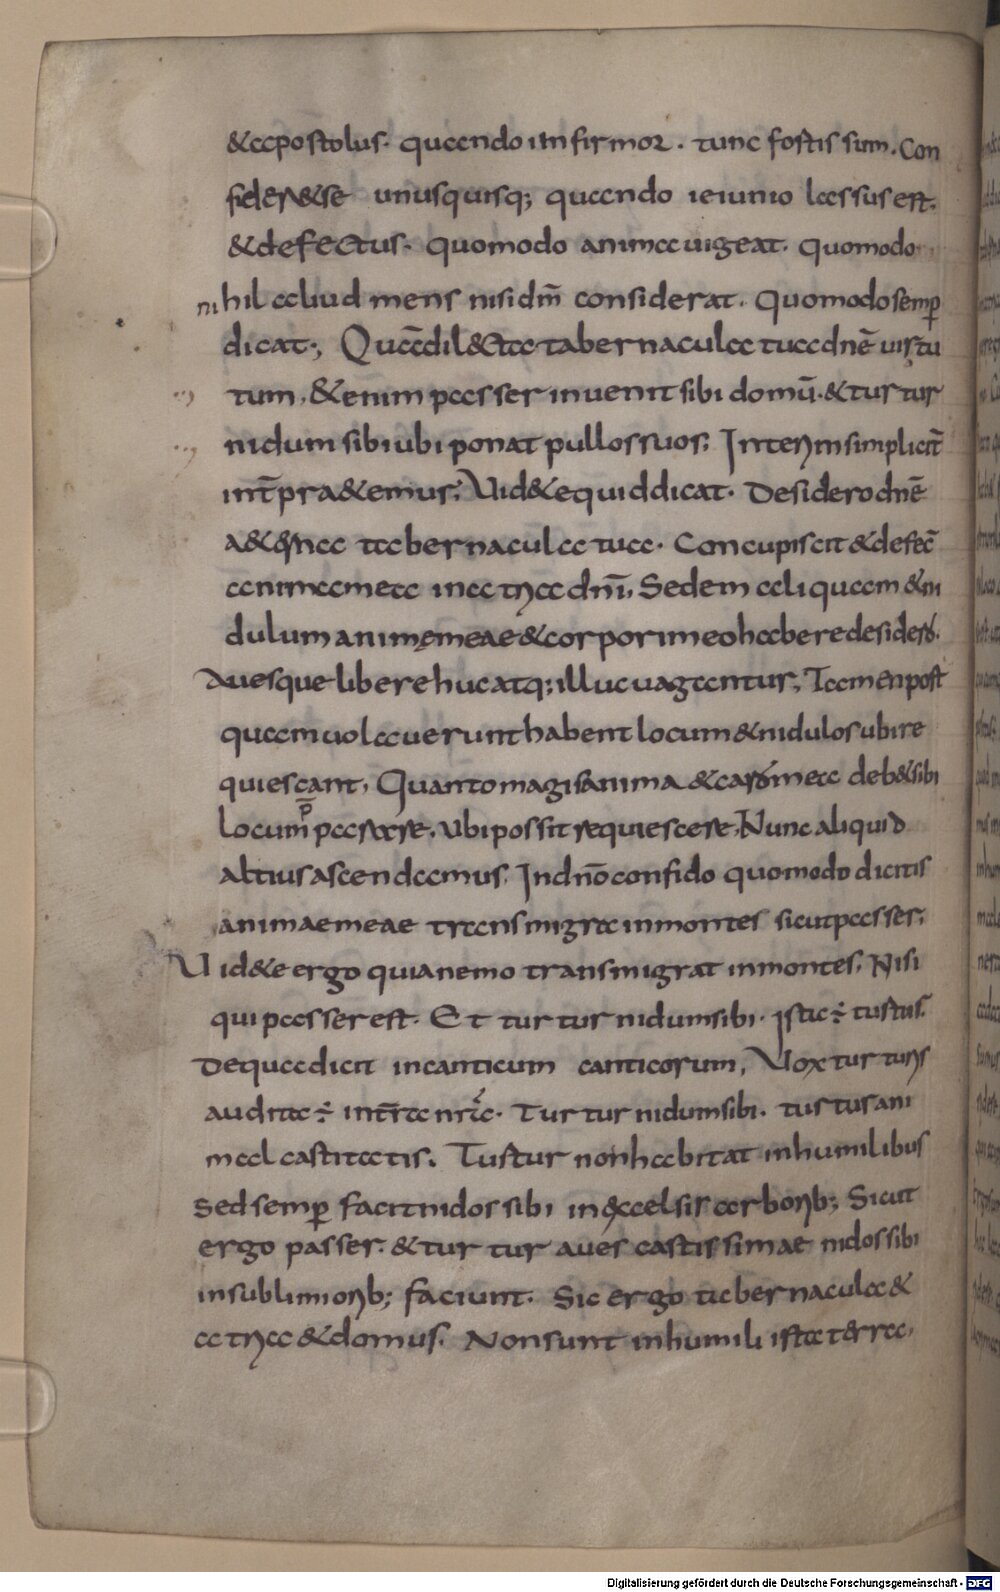 & apostolus. quando infirmor. tunc fortis sum. Con
sider& se unusquisq; quando ieiunio lassus est.
& defectus. quomodo anima uigeat. quomodo
nihil aliud mens nisi dm̄ considerat. Quomodo semp̄
dicat; Quā dil&ta tabernacula tua dnē uirtu
tum, &enim passer inuenit sibi domū. & turtur
nidum sibi ubi ponat pullos suos; Interim simplicit̄
int̄pra&emus; Uid&e quid dicat. Desidero dnē
a&erna tabernacula tua. Concupiscit & defec̄
anima mea in atria dnī, Sedem aliquam & ni
dulum animę meae & corpori meo habere desidero.
Aues que libere huc atq; illuc uagantur, Tamen post
quam uolauerunt habent locum & nidulos ubi re
quiescant, Quanto magis anima & caro mea deb& sibi
locum p̄parare. ubi possit requiescere, Nunc aliquid
altius ascendamus. In dnō confido quomodo dicitis
animae meae transmigra in montes sicut passer;
Uid&e ergo quia nemo transmigrat in montes, Nisi
qui passer est. Et turtur nidum sibi. ista ÷ turtur.
De qua dicit in canticum canticorum, Uox turturis
audita ÷ in t̄ra nr̄a. Turtur nidum sibi. turtur ani
mal castitatis. Turtur non habitat in humilibus
sed semp̄ facit nidos sibi in excelsis arborib; Sicut
ergo passer. & turtur aues castissimae nidos sibi
in sublimiorib; faciunt. Sic ergo tabernacula &
atria & domus. Non sunt in humili ista terra,
Digitalisierung gefördert durch die Deutsche Forschungsgemeinschaft - DFG